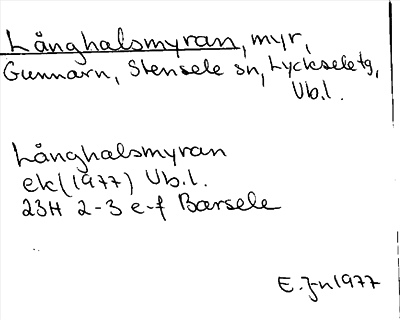 Långhalsmyran, myr,
Gunnarn, Stensele sn, Lycksele tg,
Vb.l.
Långhalsmyran
ek (1977) Vb.l.
23H 2-3 e-f Barsele
E. J-n 1977